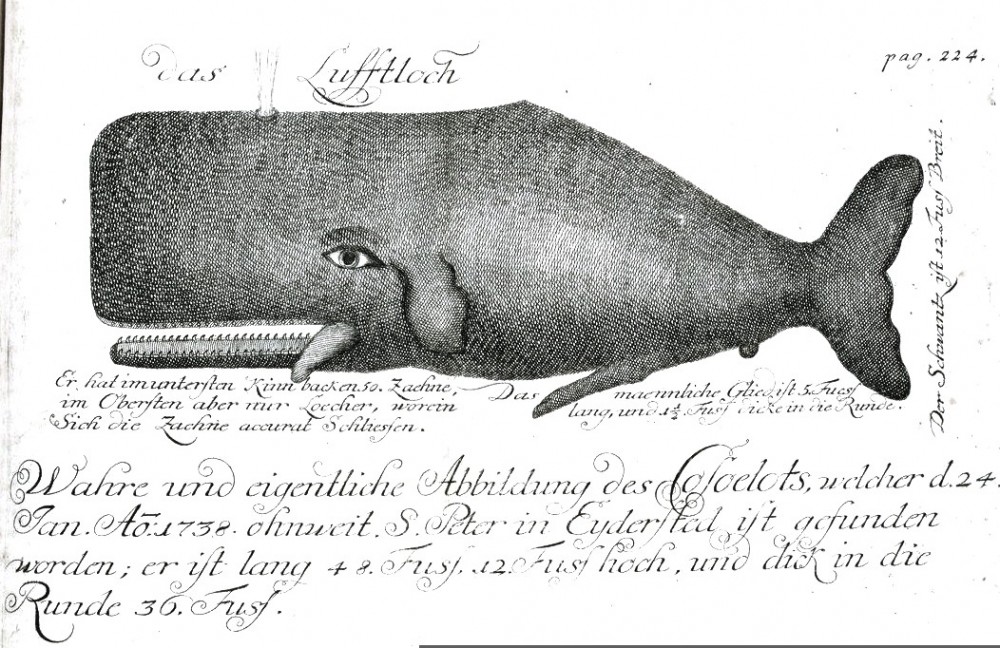 das Lufftloch
pag. 224.
Der Schwantz ist 12 Fuss Breit.
Er hat im untersten Kinnbacken 50. Zaehne,
im Obersten aber nur Loecher, worein
Sich die Zaehne accurat Schliessen.
Das maennliche Glied ist 5. Fuess
lang, und 1½ Fuss dicke in die Runde.
Wahre und eigentliche Abbildung des Cosoelots, welcher d. 24.
Jan. Aō. 1738. ohnweit S. Peter in Eydersted ist gefunden
worden; er ist lang 48. Fuss. 12. Fuss hoch, und dick in die
Runde 36. Fuss.